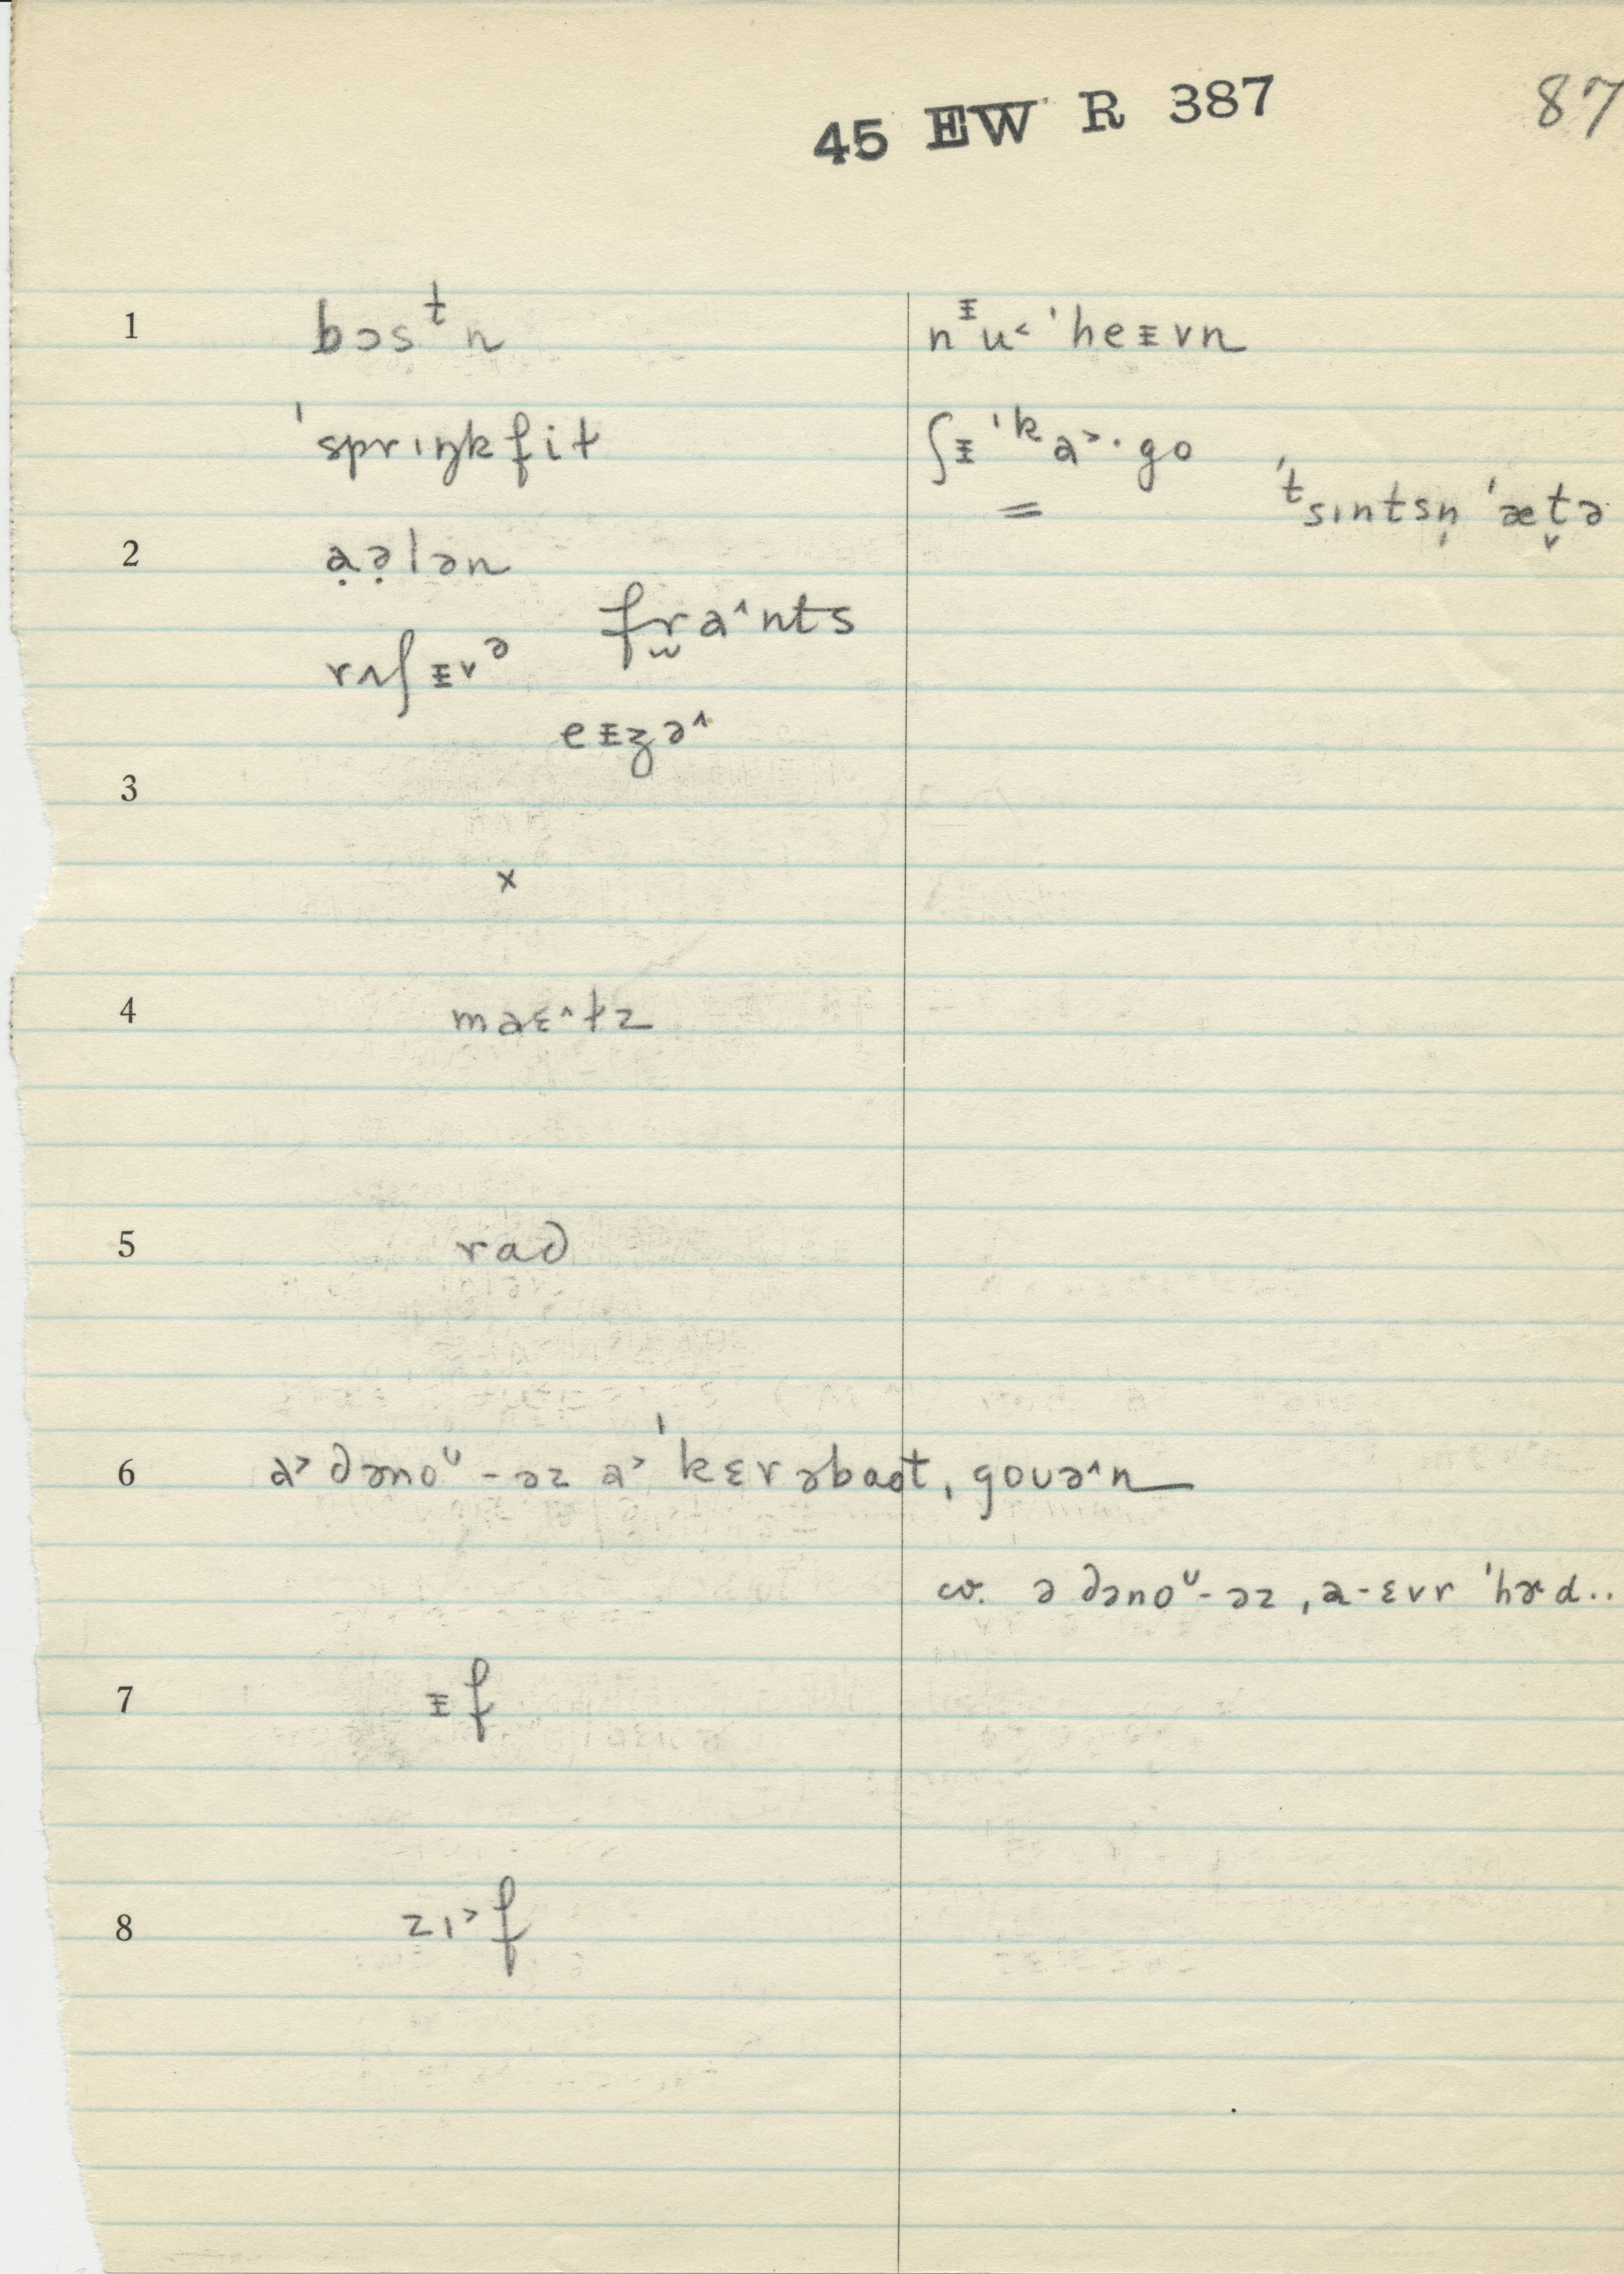 45 EW R 387
87
1 bɔsᵗn nᵻu˂ ˈheᵻvn
ˈsprɪŋkfit ʃᵻˈka˃·go
ˈtsɪntsn̩ ˈæt̬ə
2 ạə̣lən
fra^nts
rʌʃᵻvᵊ
eᵻʒə^
3
x
4 maɛ^tz
5 raə
6 a˃ ðəno ᶷ-əz a˃ ˈkɛrəbaət, gouə^n
cv. ə ðəno ᶷ-əz, a-ɛvr ˈhɚd..
7 ᵻf
8 zɪ˃f